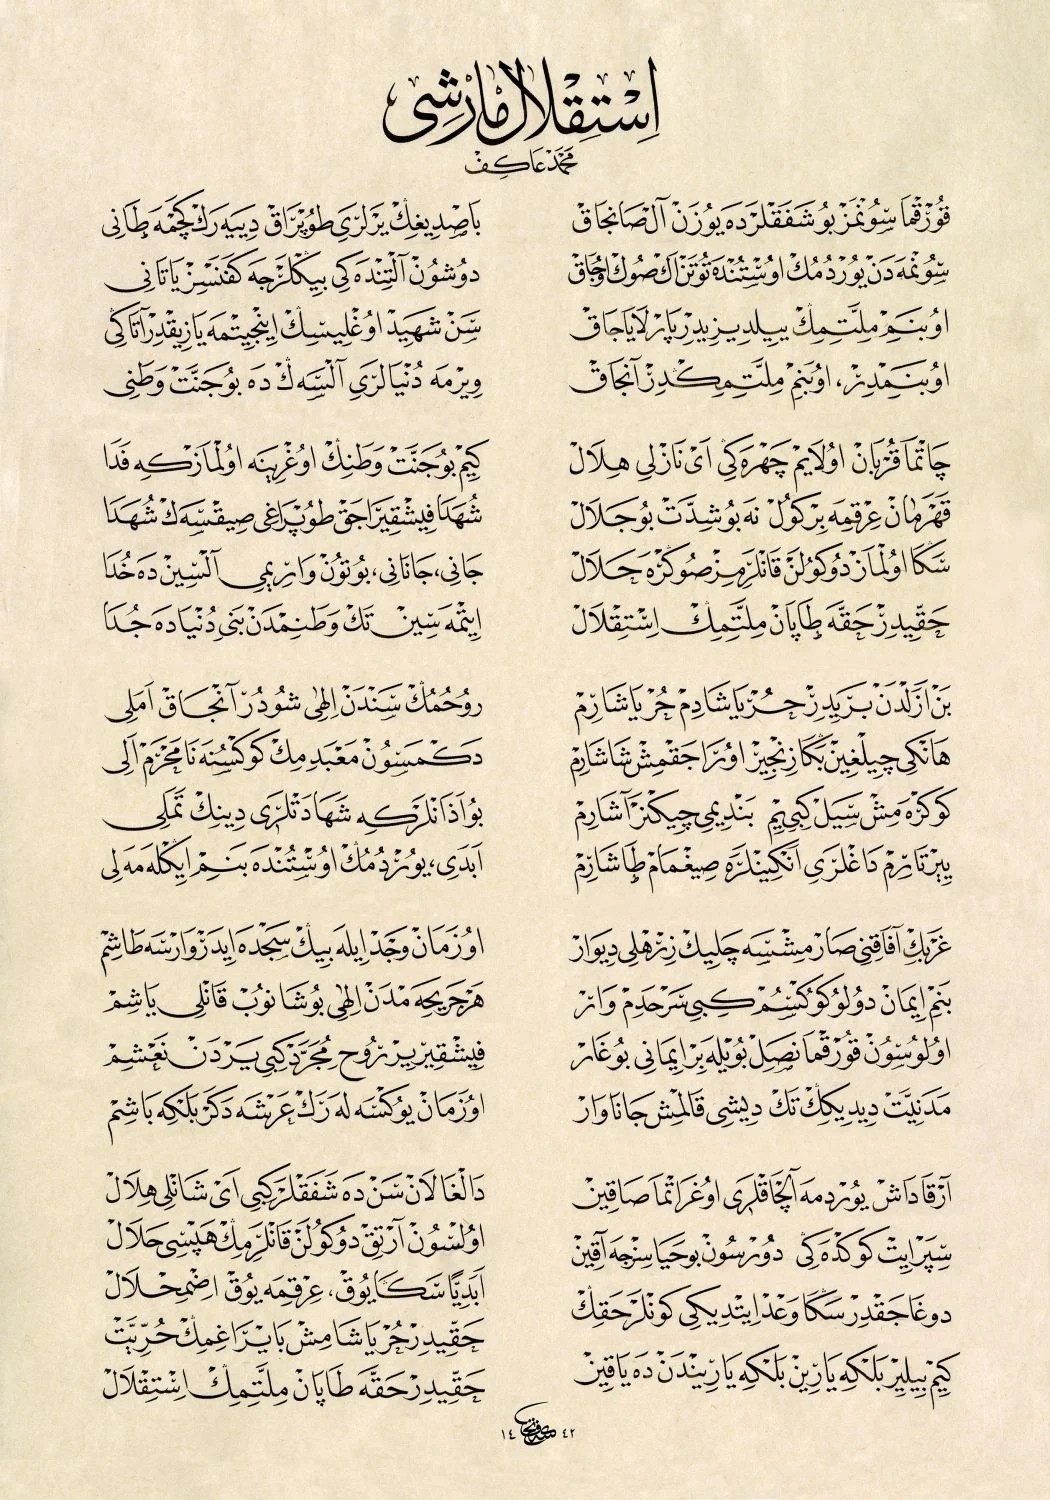 استقلال مارشى
محمد عاكف
قورقما سونمز بو شفقلرده يوزن آل صانجاق
سونمه دن يوردمك اوستنده توتن اك صوك اوجاق
او بنم ملتمك ييلديزيدر پارلاياجاق
او بنمدر، او بنم ملتمكدر آنجاق
چاتما قربان اولايم چهره كى اى نازلى هلال
قهرمان عرقمه بر كول نه بو شدت بو جلال
سكا اولماز دوكولن قانلرمز صوكره حلال
حقيدر حقه طاپان ملتمك استقلال
بن ازلدن بريدر حر ياشادم حر ياشارم
هانكى چيلغين بكا زنجير اوراجقمش شاشارم
كوكره مش سيل كبى يم بنديمى چيكنر آشارم
ييرتارم داغلرى انكينلره صيغمام طاشارم
غربك آفاقنى صارمشسه چليك زرهلى ديوار
بنم ايمان دولو كوكسم كبى سرحدم وار
اولوسون قورقما نصل بويله بر ايمانى بوغار
مدنيت ديديكك تك ديشى قالمش جاناوار
آرقاداش يوردمه آلچاقلرى اوغراتما صاقين
سپر ايت كوكده كى دورسون بو حياسزجه آقين
دوغاجقدر سكا وعد ايتديكى كونلر حقك
كيم بيلير بلكه يارين بلكه ياريندن ده ياقين
باصديغك يرلرى طوپراق دييه رك كچمه طانى
دوشون آلتنده كى بيكلرجه كفنسز ياتانى
سن شهيد اوغليسك اينجيتمه يازيقدر آتاكى
ويرمه دنيالرى آلسه ك ده بو جنت وطنى
كيم بو جنت وطنك اوغرينه اولمازكه فدا
شهدا فيشقيراجق طوپراغى صيقسه ك شهدا
جانى، جانانى، بوتون واريمى آلسين ده خدا
ايتمه سين تك وطنمدن بنى دنياده جدا
روحمك سندن الهى شودر آنجاق املى
دكمه سون معبدمك كوكسنه نامحرم الى
بو اذانلركه شهادتلرى دينك تملى
ابدى، يوردمك اوستنده بنم ايكله مه لى
او زمان وجد ايله بيك سجده ايدر وارسه طاشم
هر جريحه مدن الهى بوشانوب قانلى ياشم
فيشقيرير روح مجرد كبى يردن نعشم
او زمان يوكسله رك عرشه دكر بلكه باشم
دالغالان سن ده شفقلر كبى اى شانلى هلال
اولسون آرتق دوكولن قانلرمك هپسى حلال
ابديا سكا يوق، عرقمه يوق اضمحلال
حقيدر حر ياشامش بايراغمك حريت
حقيدر حقه طاپان ملتمك استقلال
١٤ ٤٢